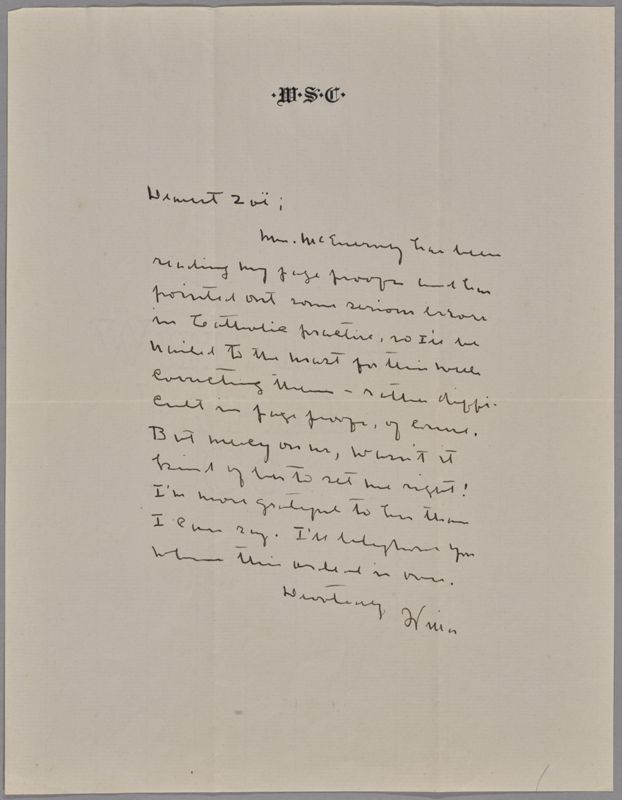 ·W·S·C·
Dearest Zoë;
Mrs. McEnerny has been
reading my page proofs and has
pointed out some serious errors
in Catholic practice, so I'll be
nailed to the mast for this week
correcting them – rather diffi-
cult in page proofs, of course.
But mercy on us, wasn't it
kind of her to set me right!
I'm more grateful to her than
I can say. I'll telephone you
when this ordeal is over.
Devotedly Willa